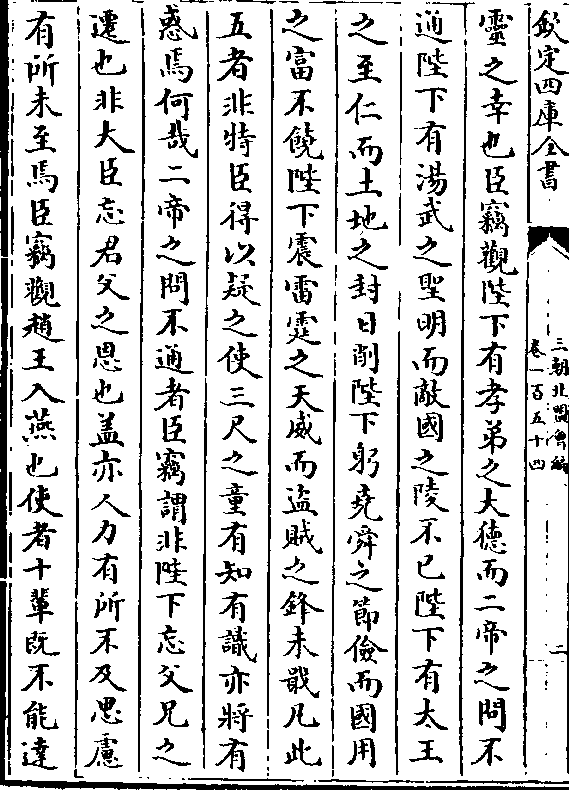 欽定四庫全書
三朝北盟會編
卷一百五十四
二
靈之幸也臣竊觀陛下有孝弟之大德而二帝之問不
通陛下有湯武之聖明而敵國之陵不已陛下有太王
之至仁而土地之封日削陛下躬堯舜之節儉而國用
之富不饒陛下震雷霆之天威而盜賊之鋒未戢凡此
五者非特臣得以疑之使三尺之童有知有識亦將有
惑焉何哉二帝之問不通者臣竊謂非陛下忘父兄之
遷也非大臣忘君父之恩也盖亦人力有所不及思慮
有所未至焉臣竊觀趙王入燕也使者十輩既不能達